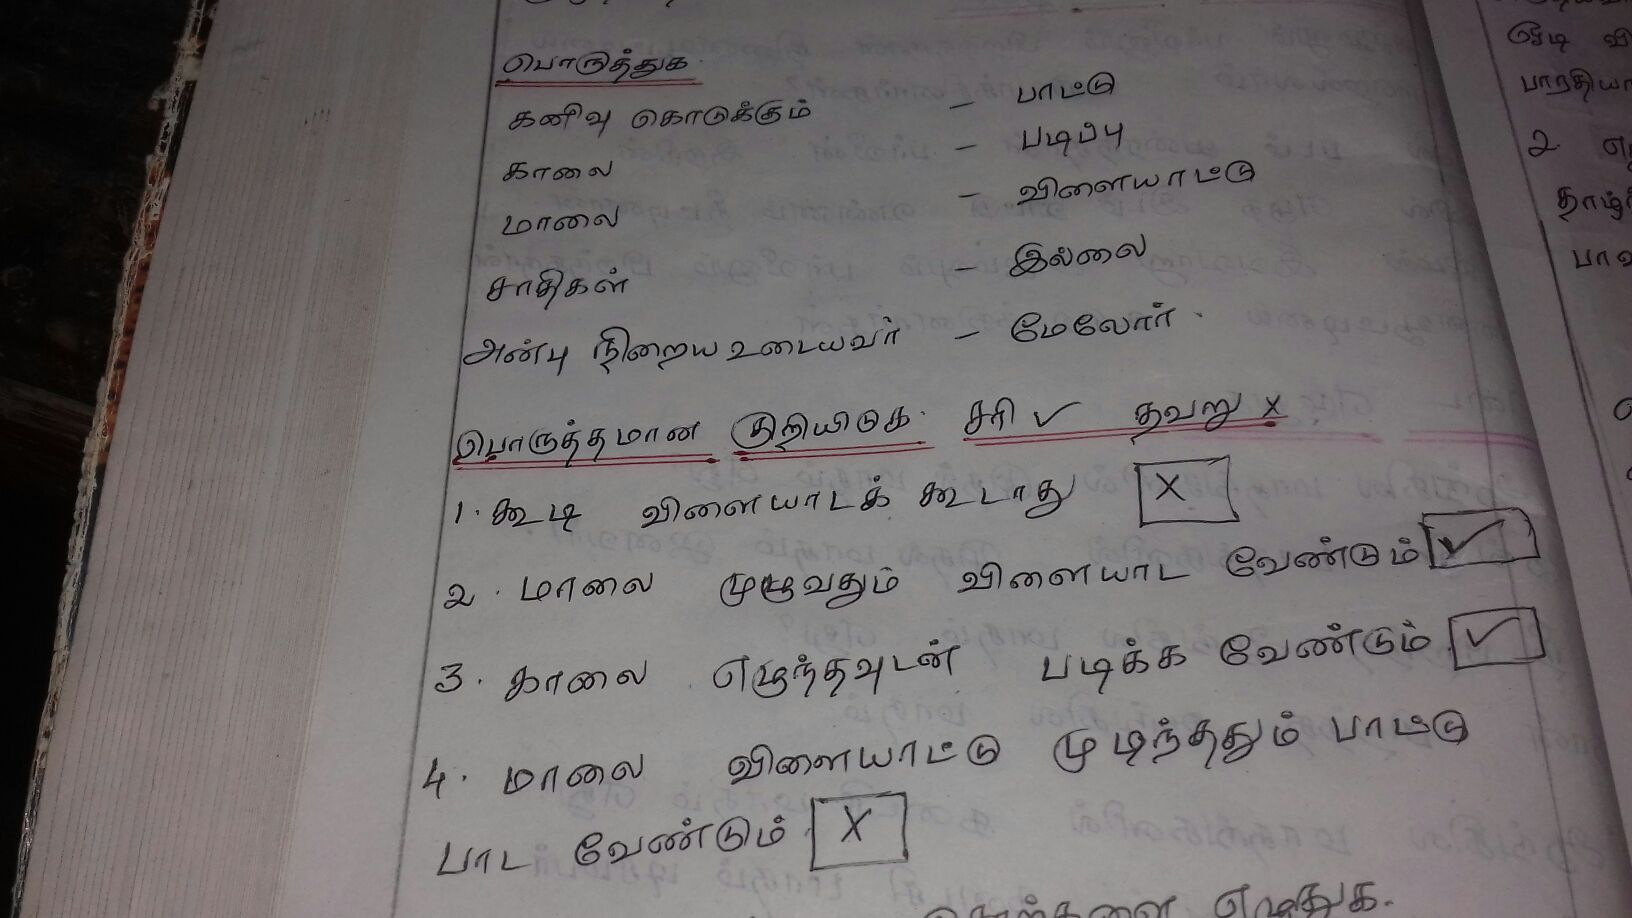 பொருத்துக.
கனிவு கொடுக்கும் - பாட்டு
காலை - படிப்பு
மாலை - விளையாட்டு
சாதிகள் - இல்லை
அன்பு நிறைய உடையவர் - மேலோர்.
பொருத்தமான குறியிடுக. சரி ✓ தவறு x
1. கூடி விளையாடக் கூடாது x
2. மாலை முழுவதும் விளையாட வேண்டும் ✓
3. காலை எழுந்தவுடன் படிக்க வேண்டும் ✓
4. மாலை விளையாட்டு முடிந்ததும் பாட்டு
பாட வேண்டும் x
எழுதுக.
டி வி
பாரதியா
2 எ
தாழ்
பாவ